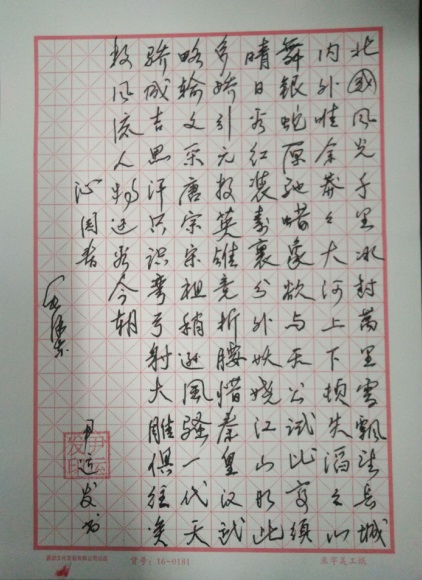 北國风光千里冰封萬里雪飄望长城
内外惟余莽々大河上下顿失滔々山
舞银蛇原驰蜡象欲与天公试比高须
晴日看红装素裹分外妖娆江山如此
多娇引无数英雄竞折腰惜秦皇汉武
略输文采唐宗宋祖稍逊风骚一代天
骄成吉思汗只识弯弓射大雕俱往矣
数风流人物还看今朝
沁园春
毛泽东
尹运发书
尹运发印
货号：16-0181